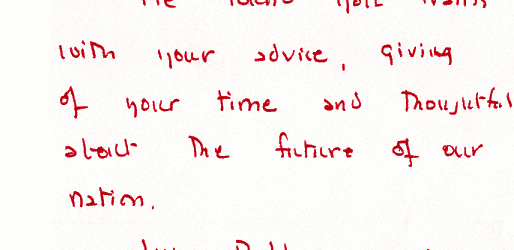 with your advice, giving
of your time and thoughtful
about the future of our
nation.